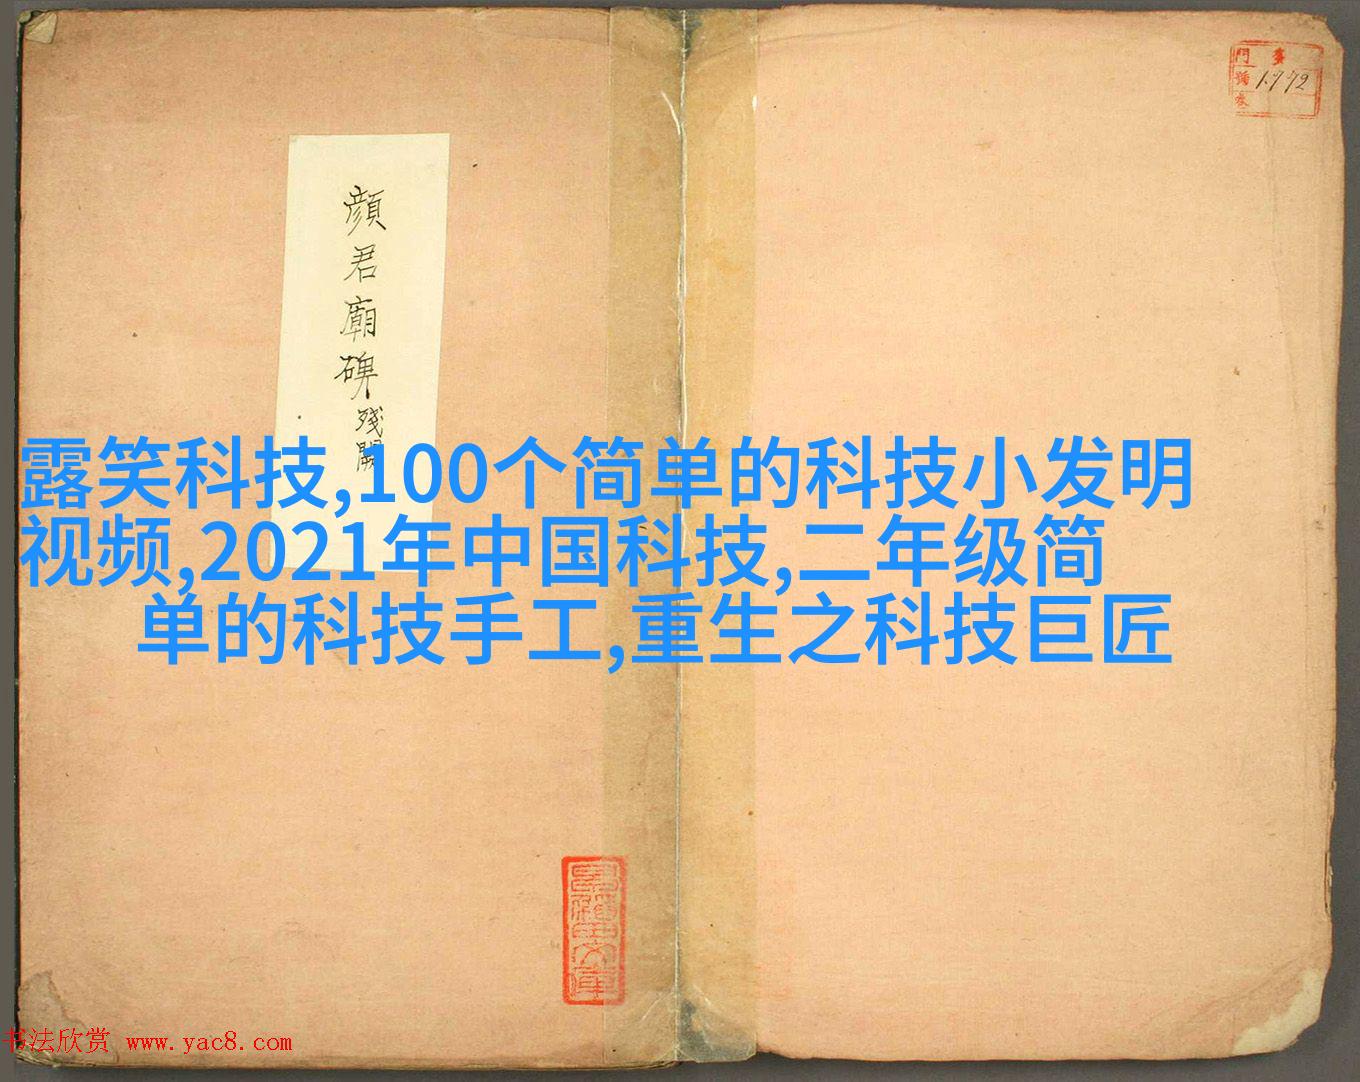 門 彙
號 1772
巻
顔君廟碑 殘闕
露笑科技,100个简单的科技小发明
视频,2021年中国科技,二年级简
单的科技手工,重生之科技巨匠
书法欣赏 www.yac8.com